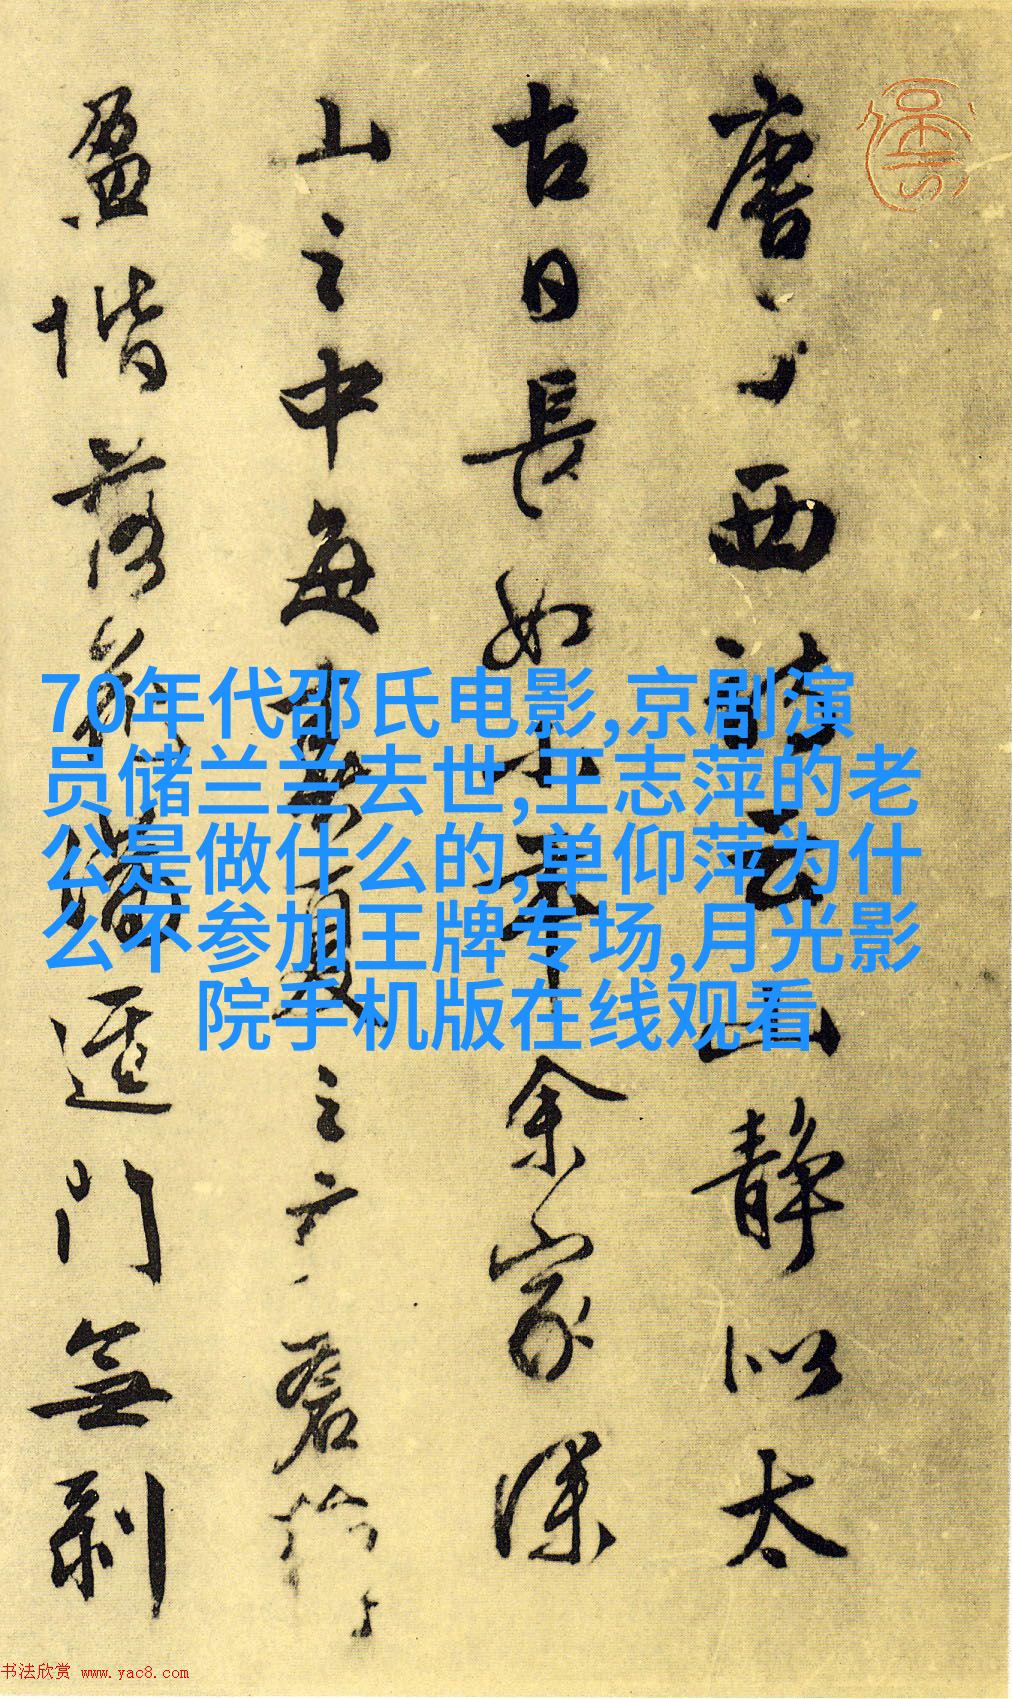 唐子西詩云山静似太
古日長如小年余家深
山之中每春夏之交蒼蘚
盈堦落花滿逕門無剥
70年代邵氏电影,京剧演
员储兰兰去世,王志萍的老
公是做什么的,单仰萍为什
么不参加王牌专场,月光影
院手机版在线观看
书法欣赏 www.yac8.com